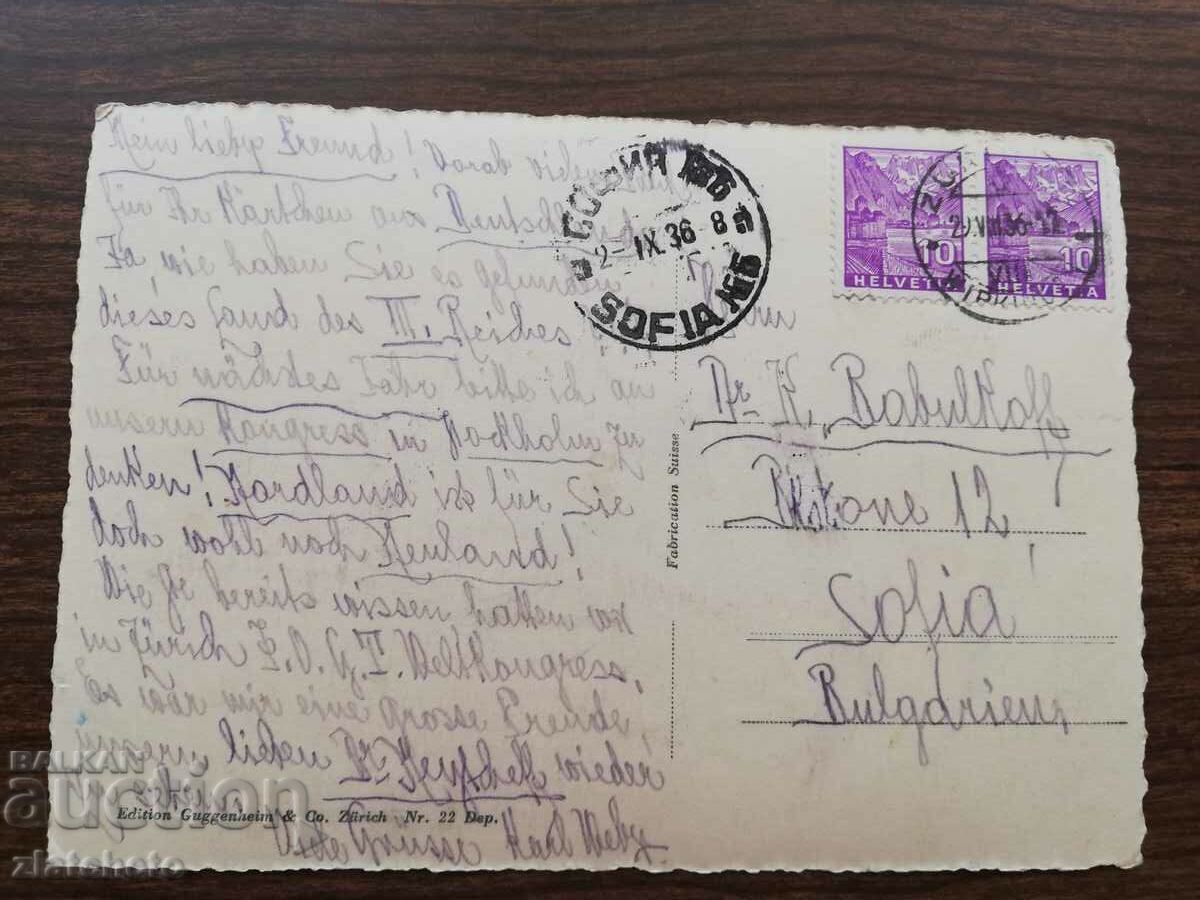 Mein lieber Freund! Vorab vielen
für Ihr Kärtchen aus Deutschland
Ja, wie haben Sie es gefunden
dieses Land des III. Reiches
Für nächstes Jahr bitte ich an
unsern Kongress in Stockholm zu
denken! Nordland ist für Sie
doch wohl noch Neuland!
Wie Sie bereits wissen hatten wir
in Zürich I.O.G.T. Weltkongress,
Es war mir eine grosse Freude,
unsern lieben Dr wieder
Gute Grüsse Karl
Edition Guggenheim & Co. Zürich Nr. 22 Dep.
Fabrication Suisse
СОФИЯ
2-IX.36-8
SOFIA
10
HELVETIA
10
HELVETIA
VIII.36-12
Herrn
Dr. K. Babulkoff
12
Sofia
Bulgarien
BALKAN
auction
zlatshoto